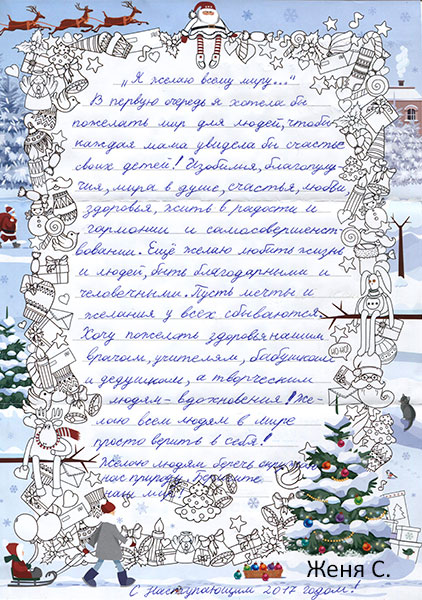 „Я желаю всему миру..."
В первую очередь я хотела бы
пожелать мир для людей, чтобы
каждая мама увидела бы счастье
своих детей! Изобилия, благополу
чия, мира в душе, счастья, любви,
здоровья, жить в радости и
гармонии и самосовершенст
вовании. Ещё желаю любить жизнь
и людей, быть благодарными и
человечными. Пусть мечты и
желания у всех сбываются.
Хочу пожелать здоровья нашим
врачам, учителям, бабушкам
и дедушкам, а творческим
людям - вдохновения! Же-
лаю всем людям в мире
просто верить в себя!
Желаю людям беречь окружаю
нас природу. Берегите
наш мир!
Женя С.
С Наступающим 2017 годом!